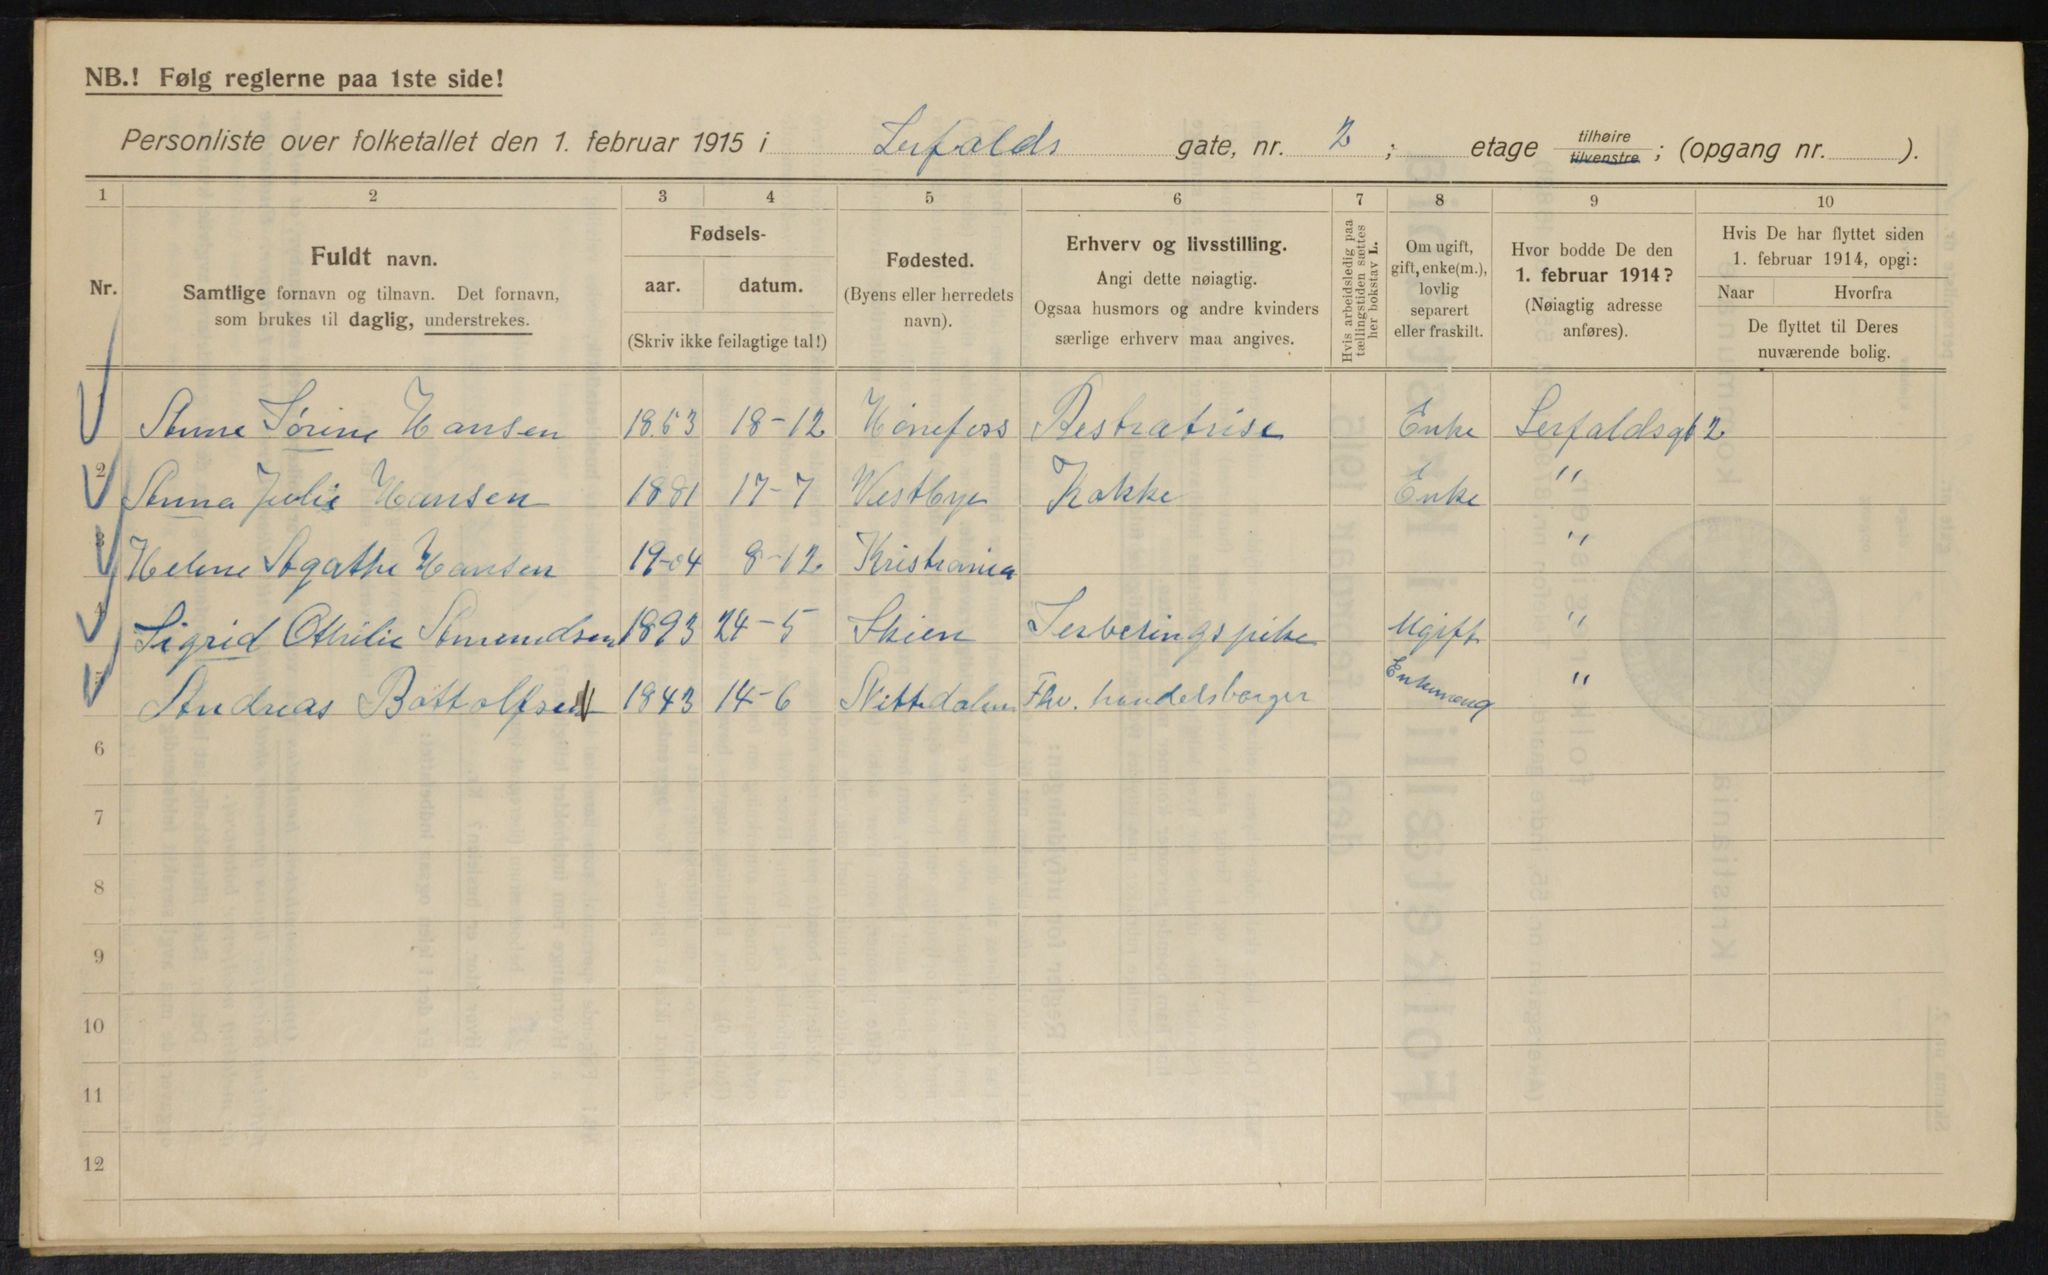 NB.! Følg reglerne paa 1ste side!
Personliste over folketallet den 1. februar 1915 i Lerfalds gate, nr. 2 ; etage tilhøire tilvenstre ; (opgang nr. ).
1 2 3 4 5 6 7 8 9 10
Nr.
Fuldt navn.
Samtlige fornavn og tilnavn. Det fornavn,
som brukes til daglig, understrekes.
Fødsels-
aar. datum.
(Skriv ikke feilagtige tal!)
Fødested.
(Byens eller herredets
navn).
Erhverv og livsstilling.
Angi dette nøiagtig.
Ogsaa husmors og andre kvinders
særlige erhverv maa angives.
Hvis arbeidsledig paa
tællingstiden sættes
her bokstav L.
Om ugift,
gift, enke(m.),
lovlig
separert
eller fraskilt.
Hvor bodde De den
1. februar 1914?
(Nøiagtig adresse
anføres).
Hvis De har flyttet siden
1. februar 1914, opgi:
Naar Hvorfra
De flyttet til Deres
nuværende bolig.
1 Anne Sørine Hansen 1853 18-12 Hønefoss Restratrise Enke Lerfaldsgt 2
2 Anna Julie Hansen 1881 17-7 Vestbye Kokke Enke "
3 Helene Agathe Hansen 19-04 8-12 Kristiania "
4 Sigrid Othilie Amundsen 1893 24-5 Skien Serveringspike Ugift "
5 Andreas Bottolfsen 1843 14-6 Nittedalen Fhv. handelsborger Enkemand "
6
7
8
9
10
11
12